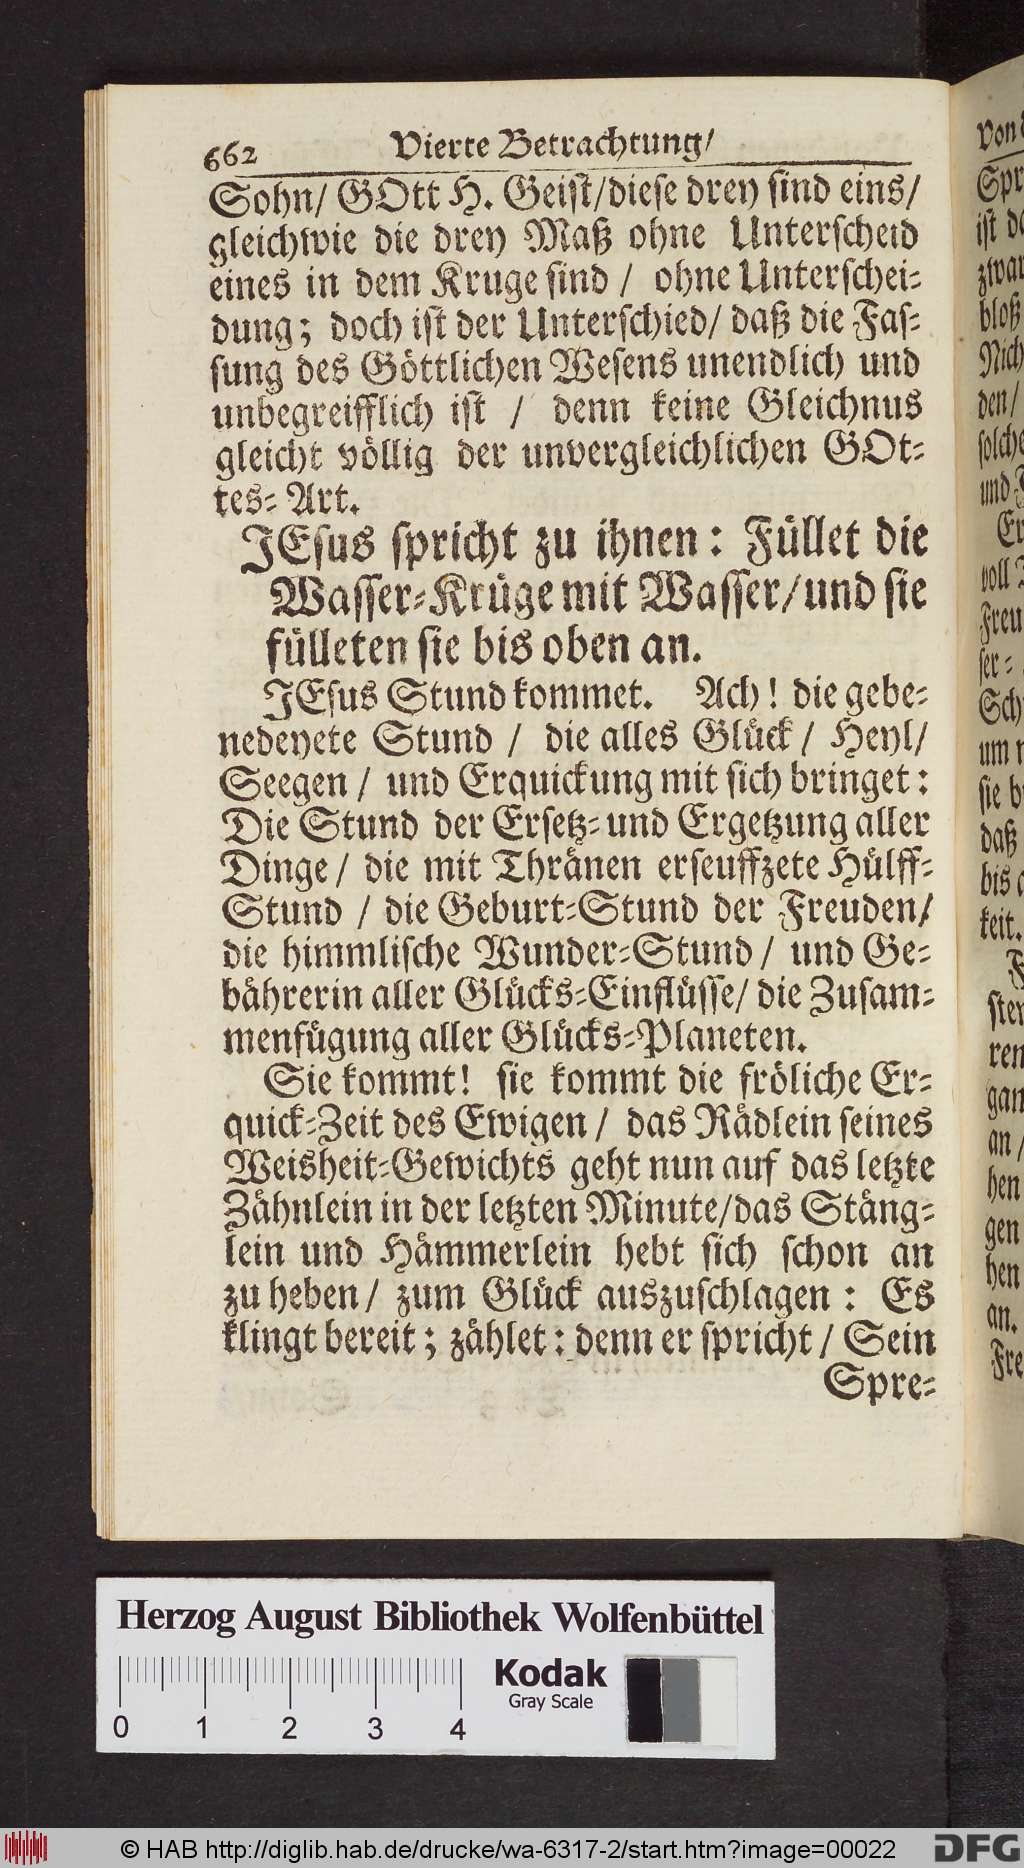 662 Vierte Betrachtung/
Sohn/ GOtt H. Geist/diese drey sind eins/
gleichwie die drey Maß ohne Unterscheid
eines in dem Kruge sind / ohne Unterschei-
dung; doch ist der Unterschied/ daß die Fas-
sung des Göttlichen Wesens unendlich und
unbegreifflich ist / denn keine Gleichnus
gleicht völlig der unvergleichlichen GOt-
tes-Art.
JEsus spricht zu ihnen: Füllet die
Wasser-Krüge mit Wasser/und sie
fülleten sie bis oben an.
JEsus Stund kommet. Ach! die gebe-
nedeyete Stund / die alles Glück/ Heyl/
Seegen / und Erquickung mit sich bringet:
Die Stund der Ersetz-und Ergetzung aller
Dinge/ die mit Thränen erseuffzete Hülff-
Stund / die Geburt-Stund der Freuden/
die himmlische Wunder-Stund/ und Ge-
bährerin aller Glücks-Einflüsse/ die Zusam-
menfügung aller Glücks-Planeten.
Sie kommt! sie kommt die fröliche Er-
quick-Zeit des Ewigen/ das Rädlein seines
Weisheit-Gewichts geht nun auf das letzte
Zähnlein in der letzten Minute/das Stäng-
lein und Hämmerlein hebt sich schon an
zu heben/ zum Glück auszuschlagen: Es
klingt bereit; zählet: denn er spricht/ Sein
Spre-
von
Spr
ist de
zwar
bloß
Nich
den/
solche
und
Er
voll
Freu
ser-
Sch
um
sie
daß
bis
keit.
ster
ren
gan
an /
hen
gen
hen
an.
Fre
Herzog August Bibliothek Wolfenbüttel
Kodak
Gray Scale
0 1 2 3 4
© HAB http://diglib.hab.de/drucke/wa-6317-2/start.htm?image=00022
DFG